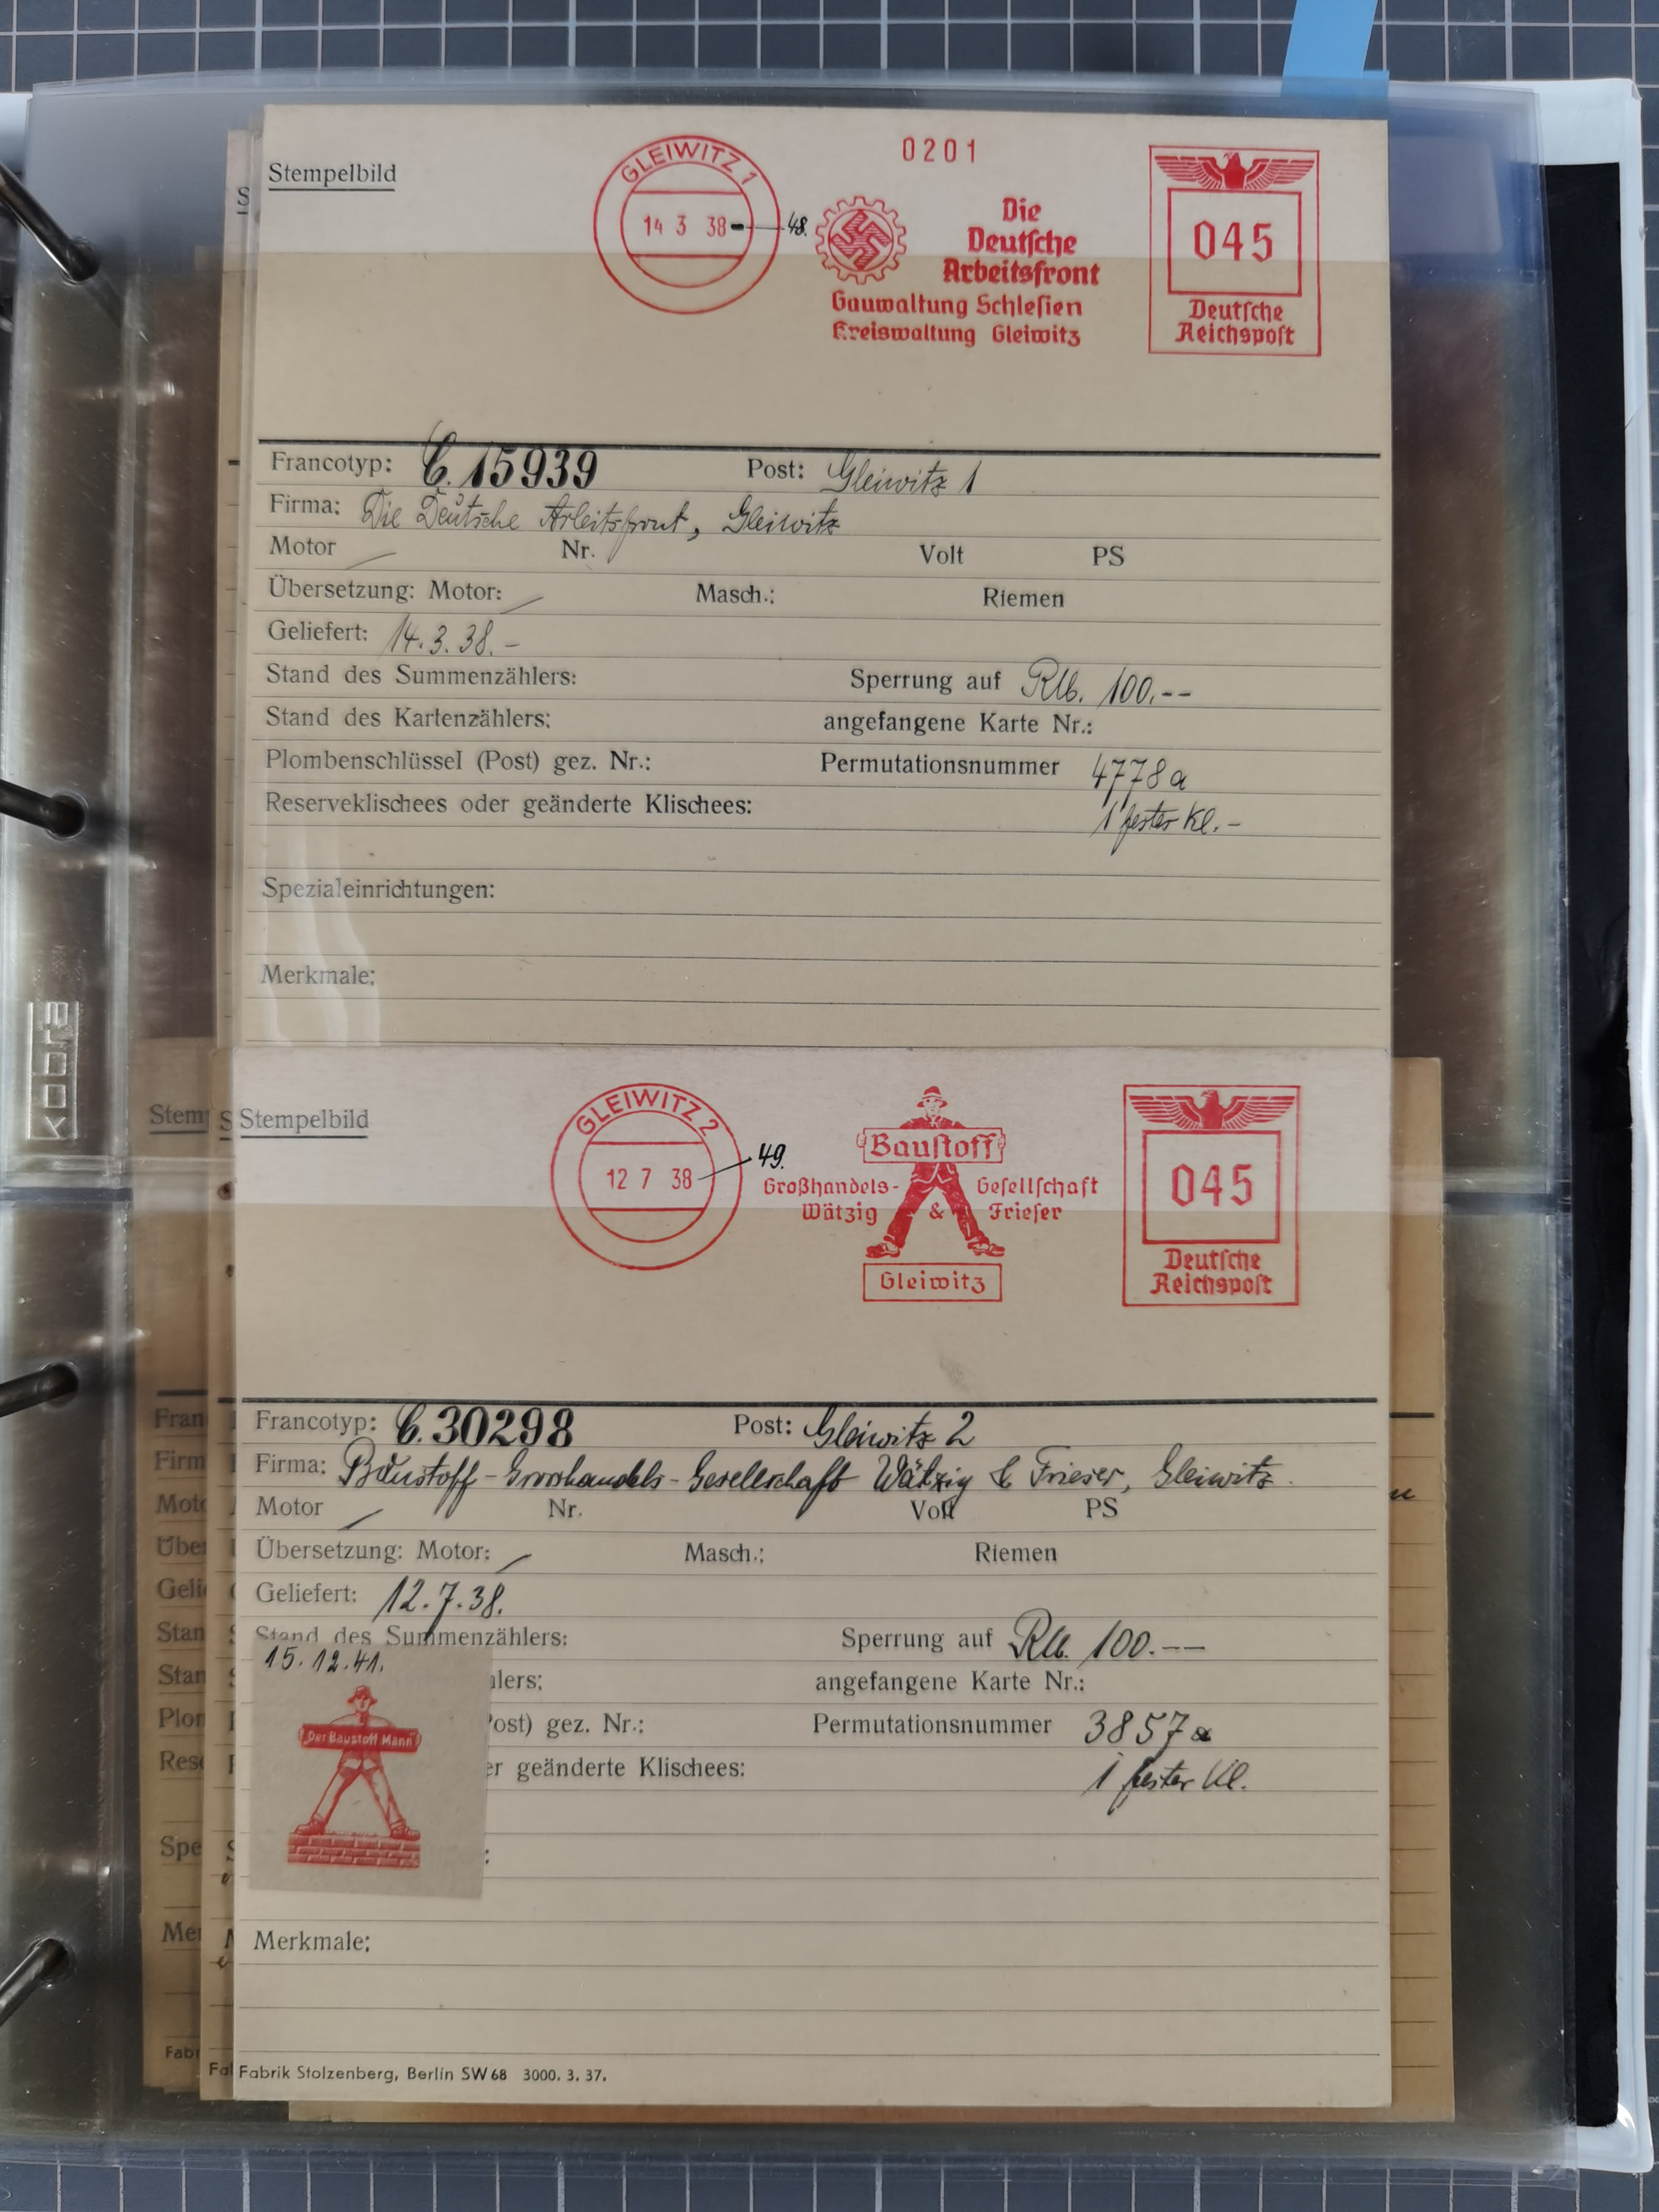 Stempelbild
GLEIWITZ 1
14 3 38
48.
0201
Die
Deutsche
Arbeitsfront
Gauwaltung Schlesien
Kreiswaltung Gleiwitz
045
Deutsche
Reichspost
Francotyp: C. 15939 Post: Gleiwitz 1
Firma: Die Deutsche Arbeitsfront, Gleiwitz
Motor Nr. Volt PS
Übersetzung: Motor: Masch.: Riemen
Geliefert: 14.3.38.-
Stand des Summenzählers: Sperrung auf RM. 100.--
Stand des Kartenzählers: angefangene Karte Nr.:
Plombenschlüssel (Post) gez. Nr.: Permutationsnummer 4778a
Reserveklischees oder geänderte Klischees: 1 fester Kl.-
Spezialeinrichtungen:
Merkmale:
kobra
Stem
S
Stempelbild
GLEIWITZ 2
12 7 38
49.
Baustoff
Großhandels- Gesellschaft
Wätzig & Frieser
Gleiwitz
045
Deutsche
Reichspost
Francotyp: C. 30298 Post: Gleiwitz 2
Firma: Baustoff-Grosshandels-Gesellschaft Wätzig & Frieser, Gleiwitz.
Motor Nr. Volt PS
Übersetzung: Motor: Masch.: Riemen
Geliefert: 12.7.38.
Stand des Summenzählers: Sperrung auf RM. 100.--
15.12.41.
hlers: angefangene Karte Nr.:
Der Baustoff Mann
Post) gez. Nr.: Permutationsnummer 3857a
er geänderte Klischees: 1 fester Kl.
Merkmale:
Fabrik Stolzenberg, Berlin SW 68 3000. 3. 37.
Fran
Firm
Moto
Über
Geli
Stan
Stan
Plon
Rese
Spe
Mer
Fab
Fa